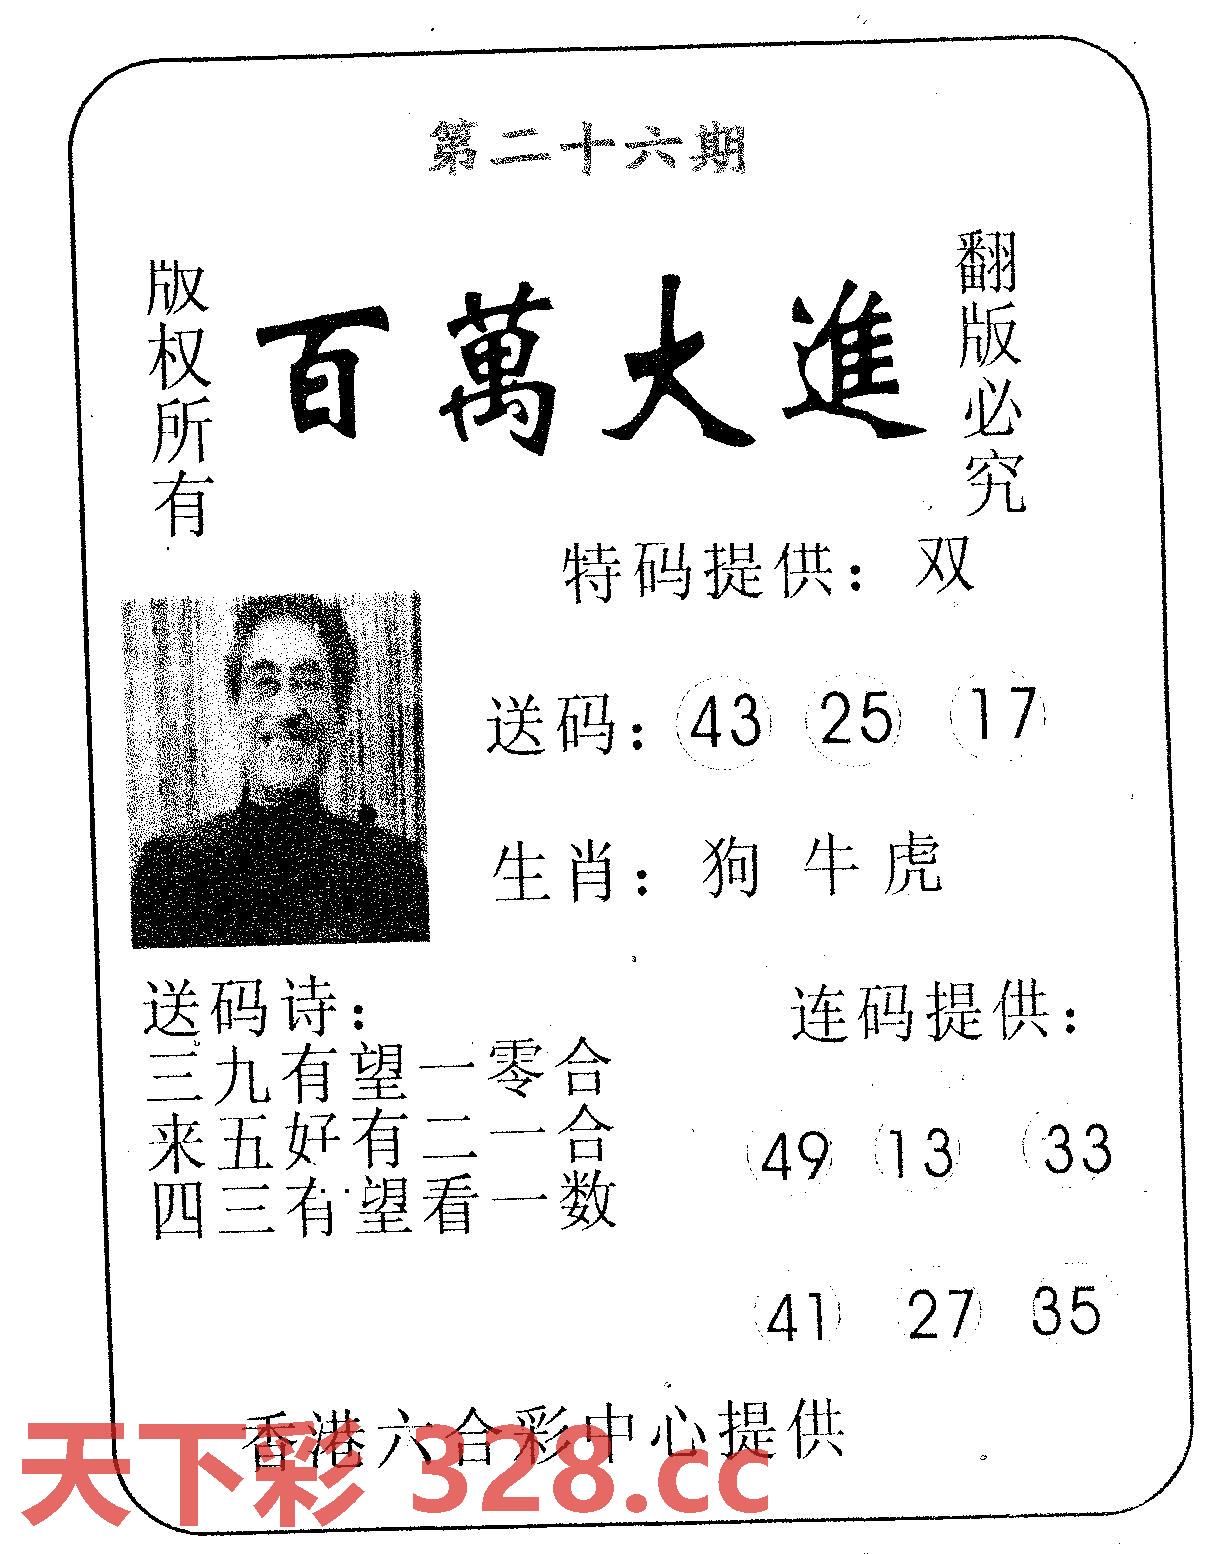 第二十六期
版权所有
百萬大進
翻版必究
特码提供：双
送码：43 25 17
生肖：狗 牛 虎
送码诗：
三九有望一零合
来五好有二一合
四三有望看一数
连码提供：
49 13 33
41 27 35
香港六合彩中心提供
天下彩 328.cc